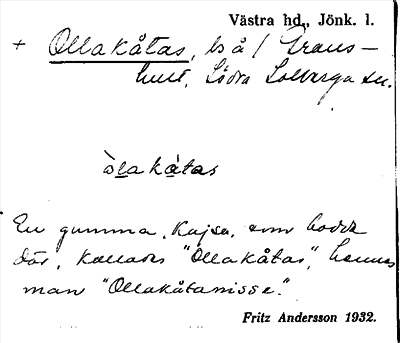 Västra hd., Jönk. l.
+ Ollakåtas, ls å / Grans-
hult, Södra Solberga sn.
òlakàtas
En gumma, Kajsa, som bodde
där, kallades "Ollakåtas", hennes
man "Ollakåtanisse".
Fritz Andersson 1932.